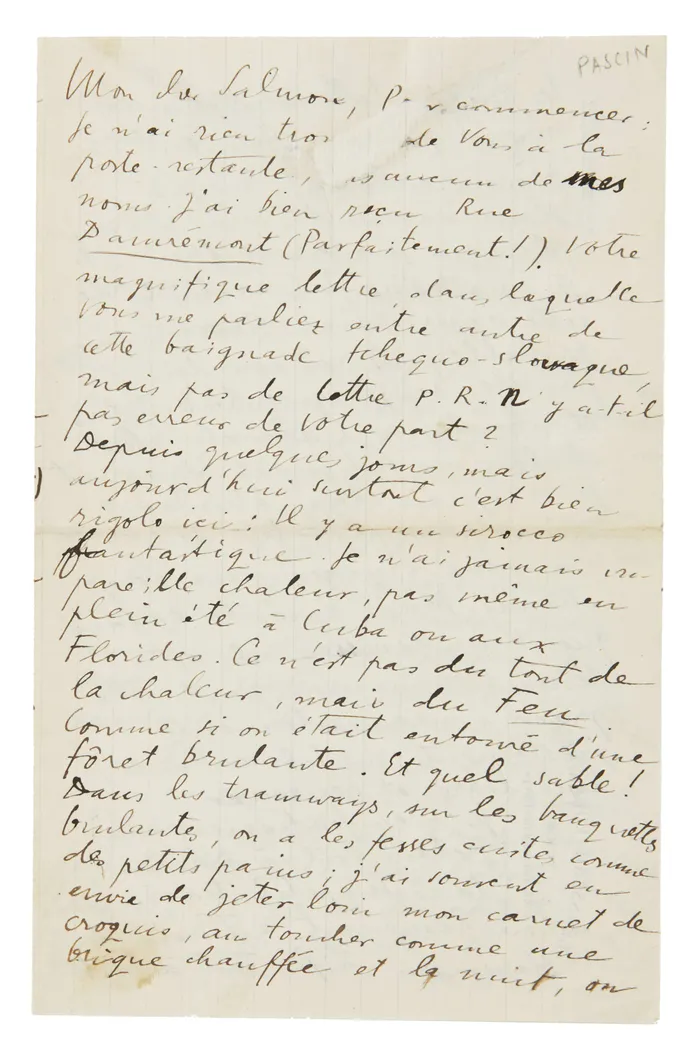 PASCIN
Mon cher Salmon, P r commencer :
Je n'ai rien de Vous à la
poste-restante, aucun de mes
noms. j'ai bien reçu Rue
Damrémont (Parfaitement!). Votre
magnifique lettre, dans laquelle
vous me parliez entre autre de
cette baignade tchequo-slovaque,
mais pas de lettre P. R. N y a-t-il
pas erreur de votre part ?
Depuis quelques jours, mais
aujourd'hui surtout c'est bien
rigolo ici : Il y a un sirocco
fantastique. Je n'ai jamais vu
pareille chaleur, pas même en
plein été à Cuba ou aux
Florides. Ce n'est pas du tout de
la chaleur, mais du Feu
Comme si on était entouré d'une
fôret brulante. Et quel sable !
Dans les tramways, sur les banquettes
brulantes, on a les fesses cuites comme
des petits pains ; j'ai souvent eu
envie de jeter loin mon carnet de
croquis, au toucher comme une
brique chauffée et la nuit, on